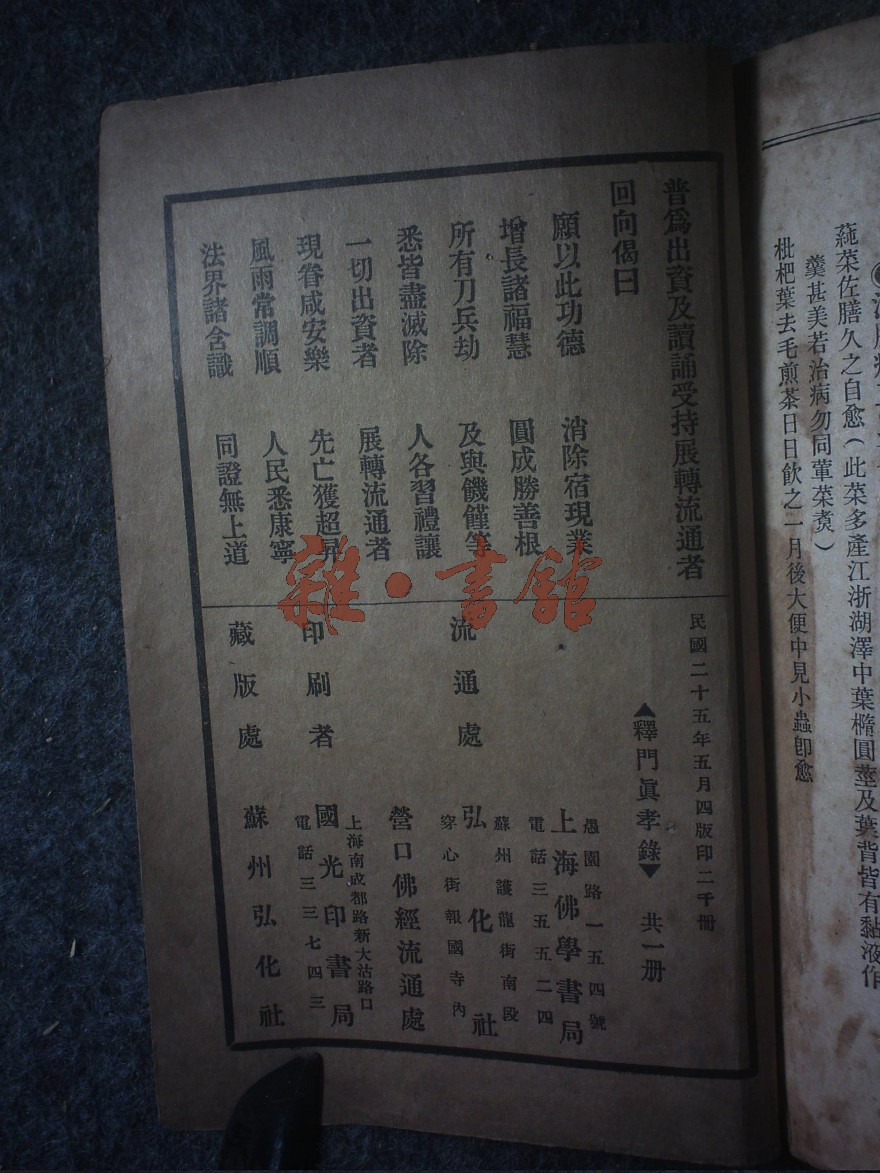 蒓菜佐膳久之自愈(此菜多產江浙湖澤中葉橢圓莖及葉背皆有黏液作
羹甚美若治病勿同葷菜煑)
枇杷葉去毛煎茶日日飲之一月後大便中見小蟲卽愈
普爲出資及讀誦受持展轉流通者
回向偈曰
願以此功德 消除宿現業
增長諸福慧 圓成勝善根
所有刀兵劫 及與饑饉等
悉皆盡滅除 人各習禮讓
一切出資者 展轉流通者
現眷咸安樂 先亡獲超昇
風雨常調順 人民悉康寧
法界諸含識 同證無上道
民國二十五年五月四版印二千冊
▲釋門眞孝錄▼ 共一册
流通處
愚園路一五四號
上海佛學書局
電話三五五二四
蘇州護龍街南段
弘化社
穿心街報國寺內
營口佛經流通處
印刷者
上海南成都路新大沽路口
國光印書局
電話三三七四三
藏版處 蘇州弘化社
雜·書館